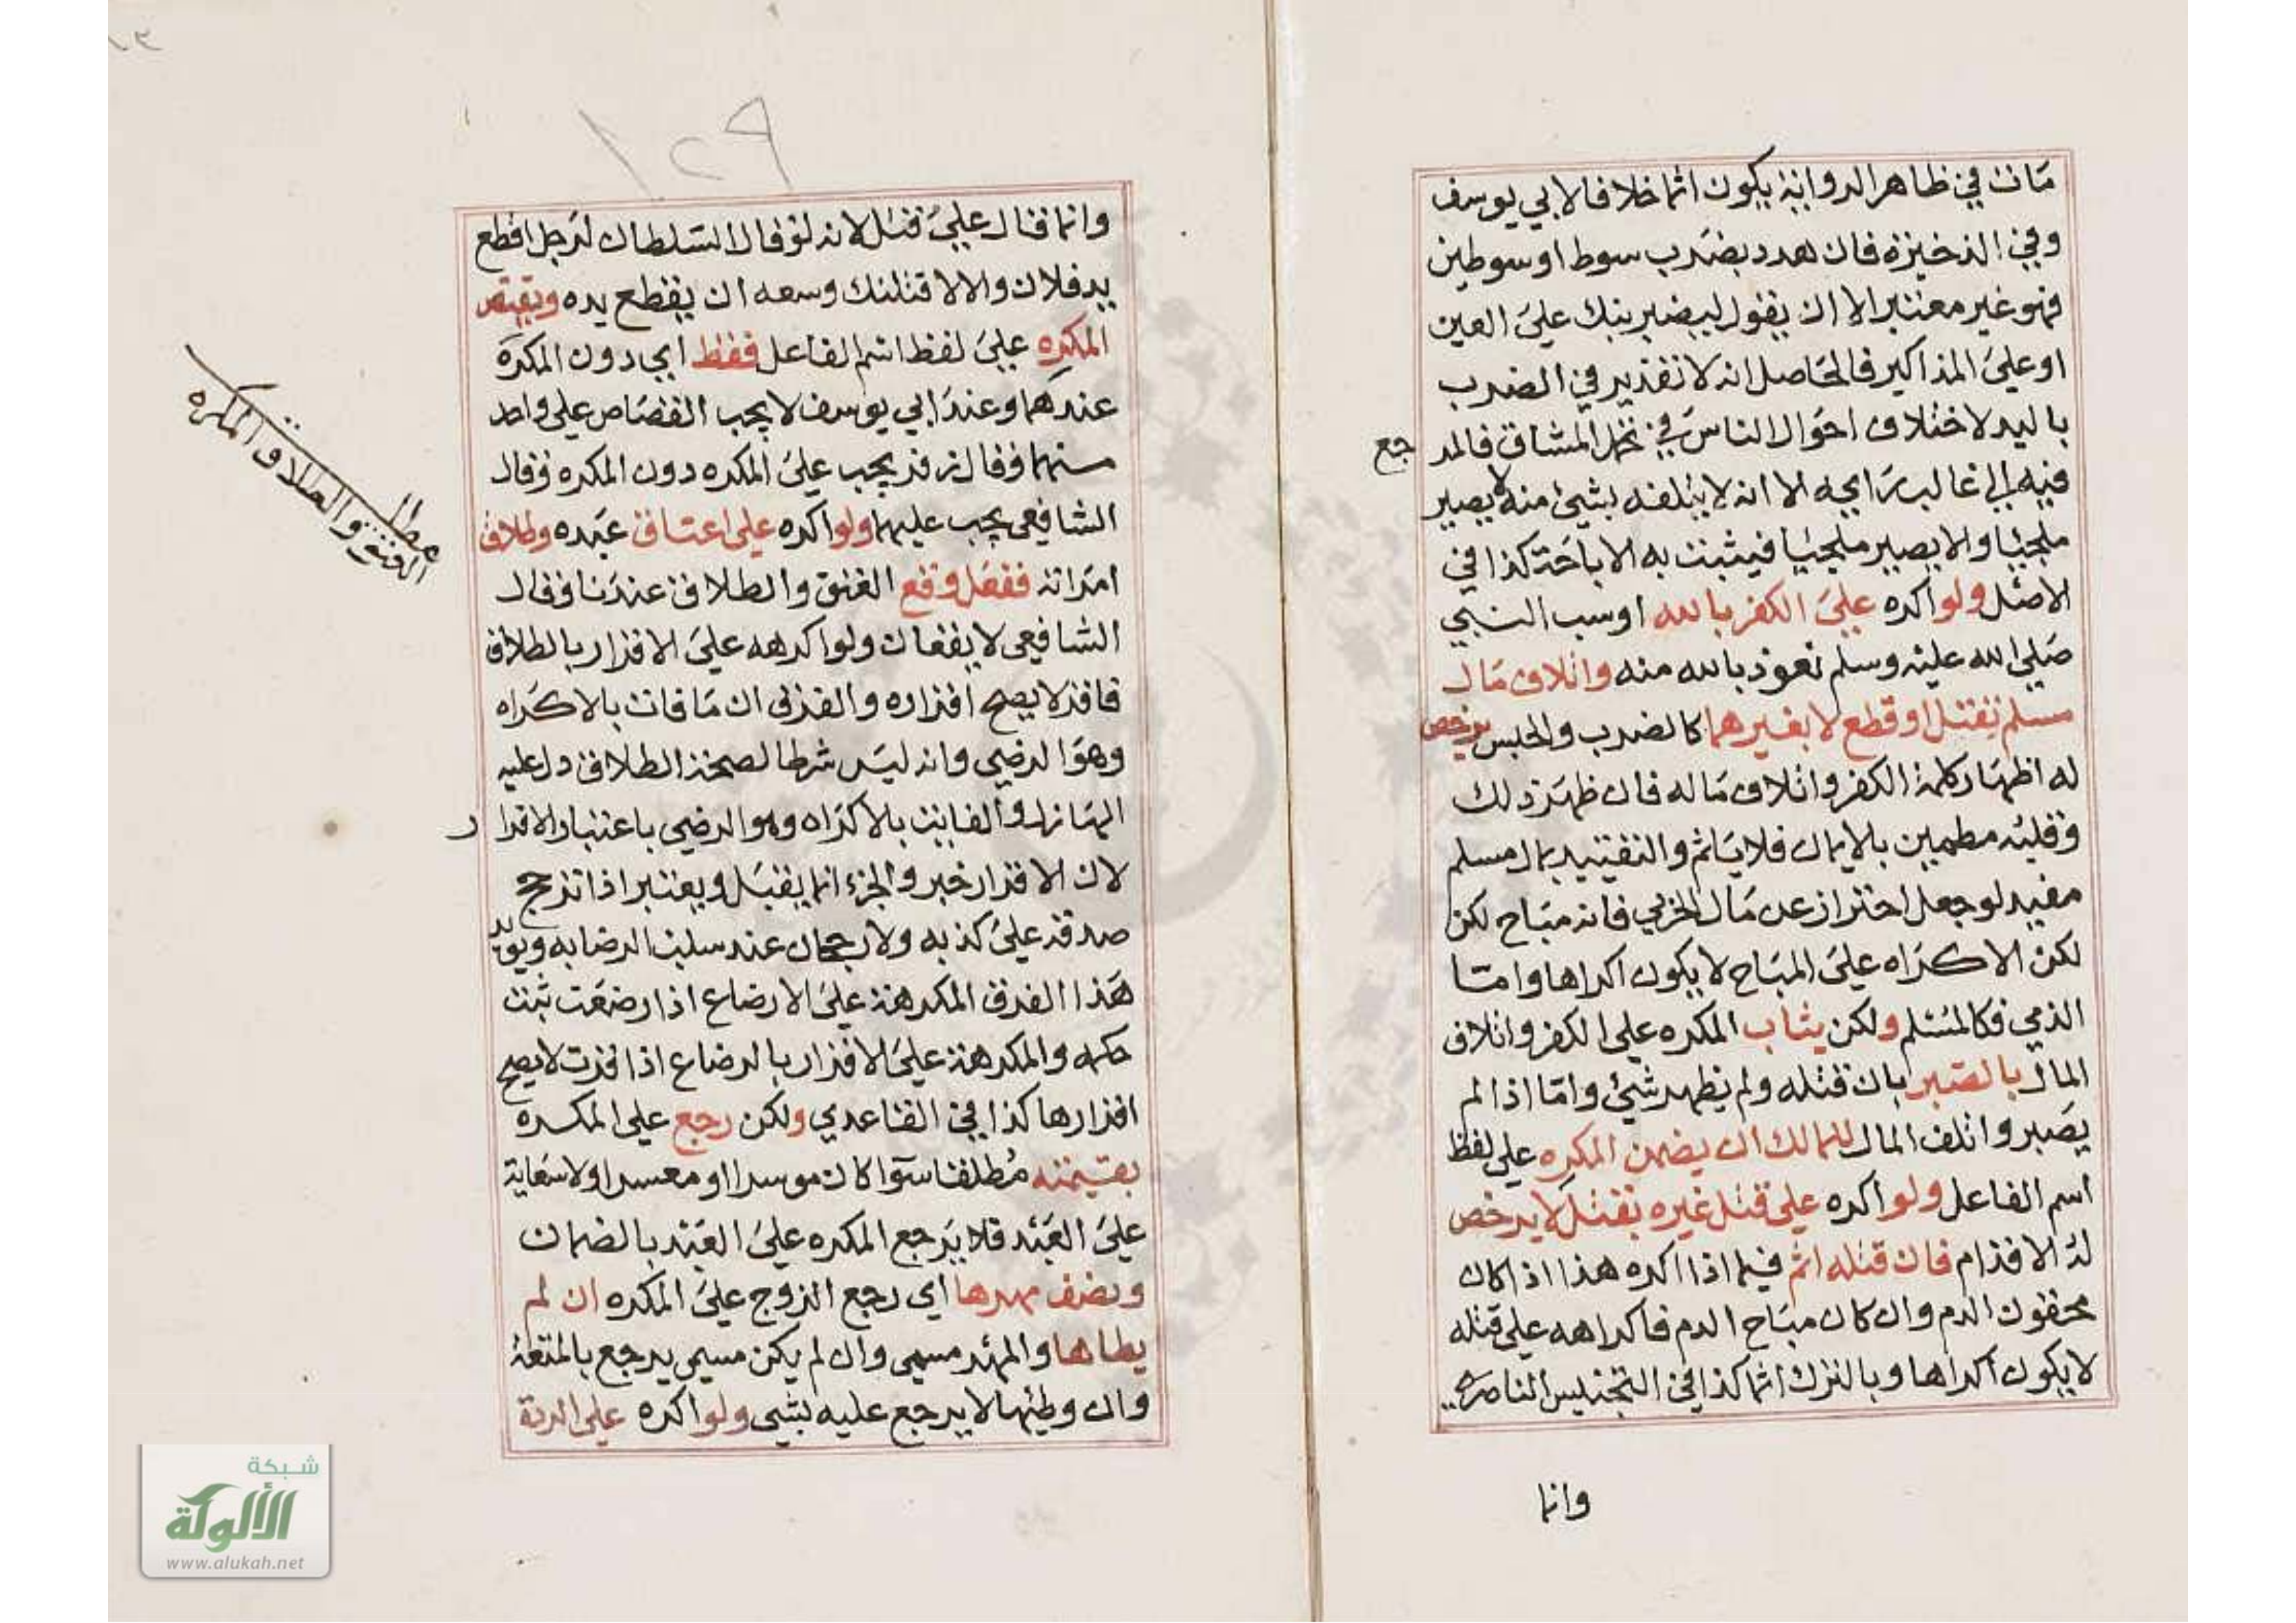 مات في ظاهر الرواية يكون اثما خلافا لابي يوسف
وفي الذخيرة فان هدد بضرب سوط او سوطين
فهو غير معتبر الا ان يقول ليضربنك على العين
او على المذاكير فالحاصل انه لا تقدير في الضرب
باليد لاختلاف احوال الناس في تحمل المشاق فالمر جع
فيه الى غالب رايه الا انه لا يتلفه بشيئ منه لا يصير
ملجيا والا يصير ملجيا فيثبت به الاباحة كذا في
الاصل ولو اكره على الكفر بالله او سب النبي
صلى الله عليه وسلم نعوذ بالله منه واتلاف مال
مسلم بقتل او قطع لا بغيرهما كالضرب والحبس يرخص
له اظهار كلمة الكفر واتلاف ماله فان ظهر ذلك
وقلبه مطمين بالايمان فلا ياثم والتقييد بمال مسلم
مفيد لو جعل احتراز عن مال الحربي فانه مباح لكن
لكن الاكراه على المباح لا يكون اكراها واما
الذمي فكالمسلم ولكن يثاب المكره على الكفر واتلاف
المال بالصبر بان قتله ولم يظهر شيئ واما اذا لم
يصبر واتلف المال للمالك ان يضمن المكره على لفظ
اسم الفاعل ولو اكره على قتل غيره بقتل لا يرخص
له الاقدام فان قتله اثم فيما اذا اكره هذا اذا كان
محقون الدم وان كان مباح الدم فاكراهه على قتله
لا يكون اكراها وبالترك اثما كذا في التجنيس الناصري
وانما
وانما قال على قتل لانه لو قال السلطان لرجل اقطع
يد فلان والا لاقتلنك وسعه ان يقطع يده ويقتص
المكره على لفظ اسم الفاعل فقط اي دون المكره
عندهما وعند ابي يوسف لا يجب القصاص على واحد
منهما وقال زفر يجب على المكره دون المكره وقال
الشافعي يجب عليهما ولو اكره على اعتاق عبده وطلاق
امراته ففعل وقع العتق والطلاق عندنا وقال
الشافعي لا يقعان ولو اكرهه على الاقرار بالطلاق
فاقر لا يصح اقراره والفرق ان ما فات بالاكراه
وهو الرضي وانه ليس شرطا لصحة الطلاق دل عليه
الهازل والفايت بالاكراه وهو الرضي باعتبار الاقرا ر
لان الاقرار خبر والجزء انما يقبل ويعتبر اذا ترجح
صدقه على كذبه ولا رجحان عند سلب الرضا به ويويد
هذا الفرق المكرهة على الارضاع اذا رضعت ثبت
حكمه والمكرهة على الاقرار بالرضاع اذا اقرت لا يصح
اقرارها كذا في القاعدي ولكن رجع على المكره
بقيمته مطلقا سوا كان موسرا او معسرا ولا سعاية
على العبد فلا يرجع المكره على العبد بالضمان
ونصف مهرها اي رجع الزوج على المكره ان لم
يطاها والمهر مسمى وان لم يكن مسمى يرجع بالمتعة
وان وطيها لا يرجع عليه بشي ولو اكره على الردة
مطلب
العتق والطلاق المكره
١٢٩
شبكة
الألوكة
www.alukah.net